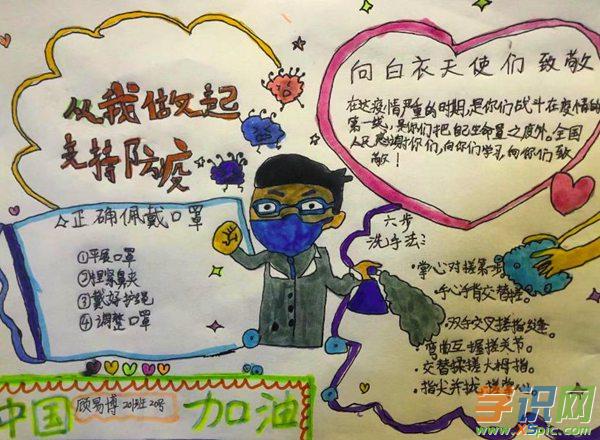 从我做起
支持防疫
向白衣天使们致敬
在这疫情严重的时期,是你们战斗在疫情的
第一线,是你们把自己生命置之度外。全国
人民感谢你们,向你们学习,向你们致
敬!
☆正确佩戴口罩
①平展口罩
②捏紧鼻夹
③戴好护绳
④调整口罩
六步
洗手法:
·掌心对搓各步
·手心手背交替搓。
·双手交叉搓指缝。
·弯曲互握搓关节。
·交替揉搓大拇指。
·指尖并拢搓掌心
中国
顾易博 2013班 20号
加油
学识网
www.XSpic.com